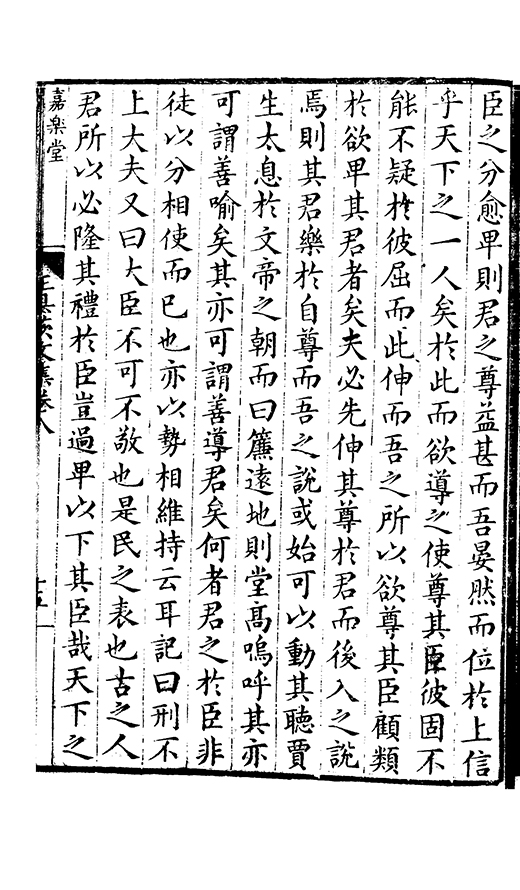 臣之分愈卑則君之尊益甚而吾晏然而位於上信
乎天下之一人矣於此而欲導之使尊其臣彼固不
能不疑於彼屈而此伸而吾之所以欲尊其臣顧類
於欲卑其君者矣夫必先伸其尊於君而後入之說
焉則其君樂於自尊而吾之說或始可以動其聽賈
生太息於文帝之朝而曰簾遠地則堂高嗚呼其亦
可謂善喻矣其亦可謂善導君矣何者君之於臣非
徒以分相使而已也亦以勢相維持云耳記曰刑不
上大夫又曰大臣不可不敬也是民之表也古之人
君所以必隆其禮於臣豈過卑以下其臣哉天下之
嘉樂堂
文集卷八
十五